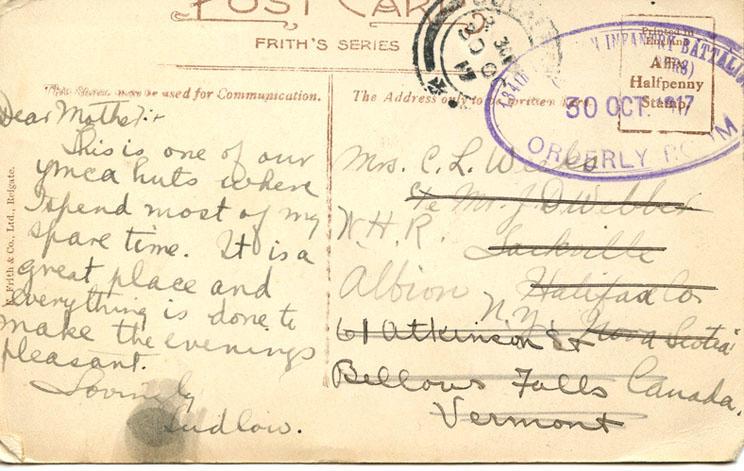 POST CARD
FRITH'S SERIES
This Space may be used for Communication.
The Address only to be written here
INFANTRY BATTALION
30 OCT. 17
ORDERLY ROOM
Affix
Halfpenny
Stamp
F. Frith & Co., Ltd., Reigate.
Dear Mother:-
This is one of our
ymca huts where
I spend most of my
spare time. It is a
great place and
everything is done to
make the evenings
pleasant.
Lovingly
Ludlow.
Mrs. C. L. Webber
c/o Mr. J. D. Webber
W.H.R.
Sackville
Albion
Halifax Co.
N.Y.
Nova Scotia
61 Atkinson St
Bellows Falls
Canada.
Vermont